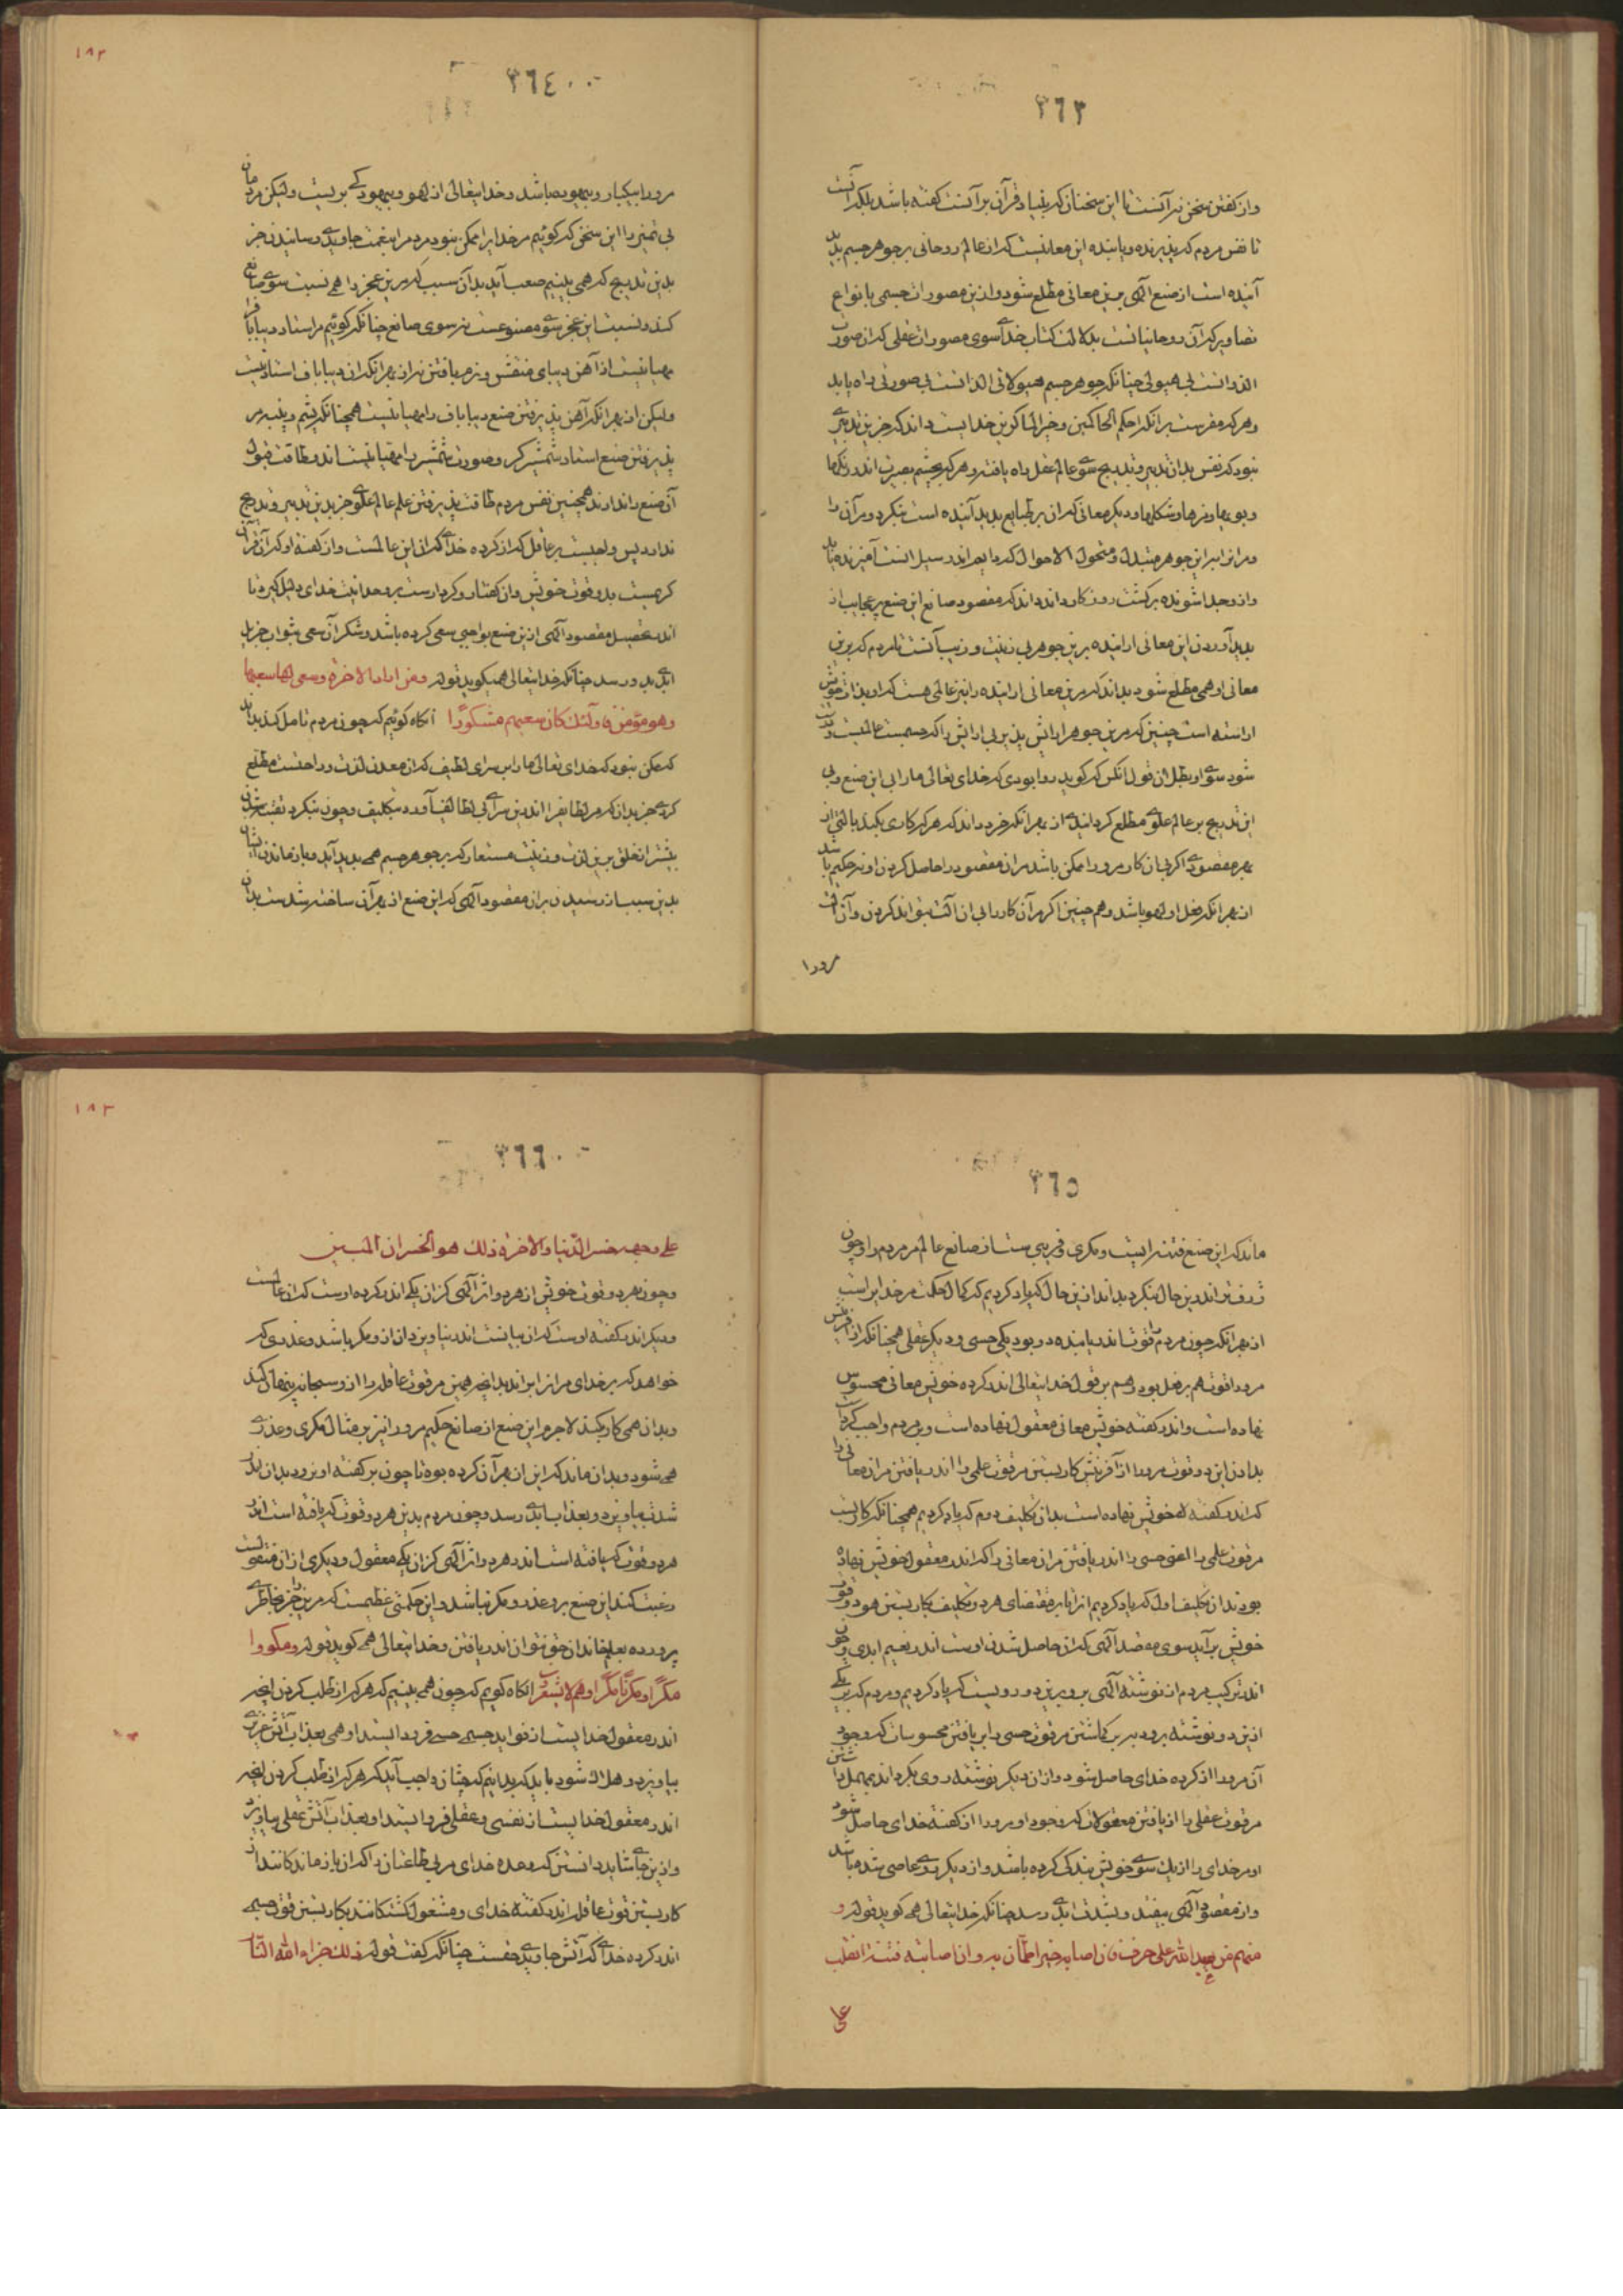 ٣٦٣
وان کفتن سخن نه آنست تا این سخنان که بنیاد قرآن بر آنست کفته باشد بلکه آنست
تا نفس مردم که پذیرنده و یابنده این معانیست که از عالم روحانی بر جوهر جسم پدید
آینده است از صنع الهی برین معانی مطلع شود و از این مصورات جسمی بانواع
تصاویر که آن روحانیانست بدلالت کتاب خدای سوی مصورات عقلی که آن صورت
الذوانست بی هیولی چنانکه جوهر جسم هیولانی الذاتست بی صورتی راه یابد
وهر که مقرست برانکه احکم الحاکمین وخیر الماکرین خدایست داند که جز بتدبیری
نبود که نفس بدان تدبیر و تدریج سوی عالم عقل راه یافته وهر که بچشم بصیرت اندر رنکها
وبویها ومزها وشکلها ودیکر معانی که آن بر طبایع پدید آینده است بنکرد ومرآن را
ومرانرا بر این جوهر متبدل ومتحول الاحوال که ما بهم اندر سبیل انست آمیزنده
وازو جدا شونده بر کشت روزکار داند داند که مقصود صانع این صنع پر عجایب از
پدید آوردن این معانی اراینده برین جوهر بی زینت وزیب آنست تا مردم که برین
معانی او همی مطلع شود بداند که مرین معانی اراینده را نیز عالمی هست که او بذات خویش
اراسته است چنین که مرین جوهر ارایش پذیر بی ارایش را که جسمست عالمیست
شود سوی او بطلان قول انکس که کوید روا بودی که خدای تعالی مارا بی این صنع وبی
این تدریج بر عالم علوی مطلع کردانیدی از بهر آنکه خرد داند که هر که کاری بکند بالتی از
بهر مقصودی اکر بی ان کار مرورا ممکن باشد مران مقصود را حاصل کردن او نه حکیم باشد
از بهر آنکه فعل او لهو باشد وهم چنین اکر مرآن کار را بی ان آلت بتواند کردن وآن آلت
مرورا
١٨٢
٣٦٤
مرورا بیکار وبیهوده باشد وخدایتعالی از لهو وبیهودکی بریست ولیکن مردمان
بی تمیز را این سخن که کوئیم مر خدایرا ممکن نبود مردم را بنعمت جاویدی رسانیدن جز
بدین تدریج که همی بینیم صعب آید بدان سبب که مرین عجز را همی نسبت سوی صانع
کنند ونسبت این عجز سوی مصنوعست نه سوی صانع چنانکه کوئیم مر استاد دیباباف را
مهیا نیست از آهن دیبای منقش ونرم بافتن نه از بهر آنکه آن دیباباف استاد نیست
ولیکن از بهر آنکه آهن پذیرفتن صنع دیباباف را مهیا نیست همچنانکه پشم وپنبه مر
پذیرفتن صنع استاد شمشیرکر وصورت شمشیر را مهیا نیستند وطاقت قبول
آن صنع را ندارند همچنین نفس مردم طاقت پذیرفتن علم عالم علوی جز بدین تدبیر وتدریج
ندارد پس واجبست بر عاقل که از کرده خدای که آن این عالمست واز کفته او که آن قرآن
کریمست بدو قوت خویش وان کفتار وکردارست بر وحدانیت خدای دلیل کیرد تا
اندر تحصیل مقصود الهی ازین صنع بواجبی سعی کرده باشد وشکر آن سعی بثواب جزیل
ابدی بدو رسد چنانکه خدایتعالی همیکوید قوله ومن اراد الاخرة وسعی لها سعیها
وهو مؤمن فاولئک کان سعیهم مشکورا انکاه کوئیم که چون مردم تامل کند بداند
که ممکن نبود که خدای تعالی مارا بر سرای لطیف که آن معدن لذت وراحتست مطلع
کردی جز بدانکه مر لطایف را اندرین سرای بی لطایف آورد بتکلیف وچون بنکرد
بیشتر از خلق برین لذت وزینت مستعار که بر جوهر جسم همی پدید آید وباز ماندن ایشان
بدین سبب از رسیدن بدان مقصود الهی که این صنع از بهر آن ساخته شدست بدان
٣٦٥
ماند که این صنع فتنه ایست ومکری وفریبی ست از صانع عالم مر مردم را وچون
ژرف تر اندرین حال بنکرد بداند ازین حال که یاد کردیم که کمال حکمت مر خدایراست
از بهر آنکه چون مردم را قوتها اندریابنده دو بود یکی حسی ودیکر عقلی همچنانکه از آفرینش
مرورا قوت هم بر فعل بود وهم بر قول خدایتعالی اندر کرده خویش معانی محسوس
نهاده است واندر کفته خویش معانی معقول نهاده است وبر مردم واجب کرد
بدادن این دو قوت مرورا از آفرینش کار بستن مر قوت علمی را اندر یافتن مران معانی را
که اندر کفته خویش نهاده است بدان تکلیف دوم که یاد کردیم همچنانکه کاربست
مر قوت علمی را اعنی حسی را اندر یافتن مران معانی را که اندر معقول خویش نهاده
بود بدان تکلیف اول که یاد کردیم از تا بر مقتضای هر دو تکلیف بکار بستن هر دو قوت
خویش برآید سوی مقصد الهی که آن حاصل شدن اوست اندر نعیم ابدی وچون
اندر ترکیب مردم از نوشته الهی برو برین دو رویست که یاد کردیم ومردم که بر یکی
ازین دو نوشته برود بر کماشتن مر قوت حسی را بر یافتن محسوسات که وجود
آن مرورا از کرده خدای حاصل شود واز آن دیکر نوشته روی بکرداند بمهمل داشتن
مر قوت عقلی را از یافتن معقولات که وجود او مرورا از کفته خدای حاصل شود
او مر خدای را از یک سوی خویش بندکی کرده باشد واز دیکر روی عاصی شده باشد
واز مقصود الهی بیفتد وبشدت ابدی رسد چنانکه خدایتعالی همی کوید قوله و
منهم من یعبد الله علی حرف فان اصابه خیر اطمأن به وان اصابته فتنة انقلب
علی
١٨٣
٣٦٦
علی وجهه خسر الدنیا والاخرة ذلک هو الخسران المبین
وچون بهر دو قوت خویش از هر دو اثر الهی کز آن یکی اندر کرده اوست که آن عالمست
ودیکر اندر کفته اوست که آن بیانست اندر نیاویزد آن از او مکر باشد وغدری که
خواهد که بر خدای مر از ایزاندیدا بجز همین مر قوت عاقله را ازو سبحانه پنهان کند
وبدان همی کار نکند لاجرم این صنع از صانع حکیم مرورا نیز بر مثال مکری وغدری
همی شود وبدان ماند که این از بهر آن کرده بوه تا چون بر کفته او نرود بدان
شدت بیاویزد وبعذاب ابدی رسد وچون مردم بدین هر دو قوت که یافته است اندر
هر دو قوت که یافته است اندر هر دو اثر الهی کز آن یکی معقول ودیکری از آن منقولست
رغبت کند این صنع برو غدر ومکر نباشد واین حکمتی عظیمست که مرین را جز بخاطری
پرورده بعلم خاندان حق نتوان اندر یافتن وخدایتعالی همی کوید قوله ومکروا
مکرا ومکرنا مکرا وهم لا یشعرون انکاه کویم که چون همی بینیم که هر که از طلب کردن انچه
اندر مفعول خدایست از فواید جسمی حسی فرو ایستد او همی بعذاب آتش
بیاویزد وهلاک شود باید که بدانیم که چنان واجب آید که هر که از طلب کردن انچه
اندر معقول خدایست از نفسی وعقلی فرو ایستد او بعذاب آتش عقلی بیاویزد
وازین جای شاید دانستن که وعده خدای مر بی طاعتان را که از باز ماندکانند از
کار بستن قوت عاقله اندر کفته خدای ومشغول کشتکانند بکار بستن قوت حسی
اندر کرده خدای که آتش جاویدی حقست چنانکه کفت قوله ذلک جزاء اعداء الله النار